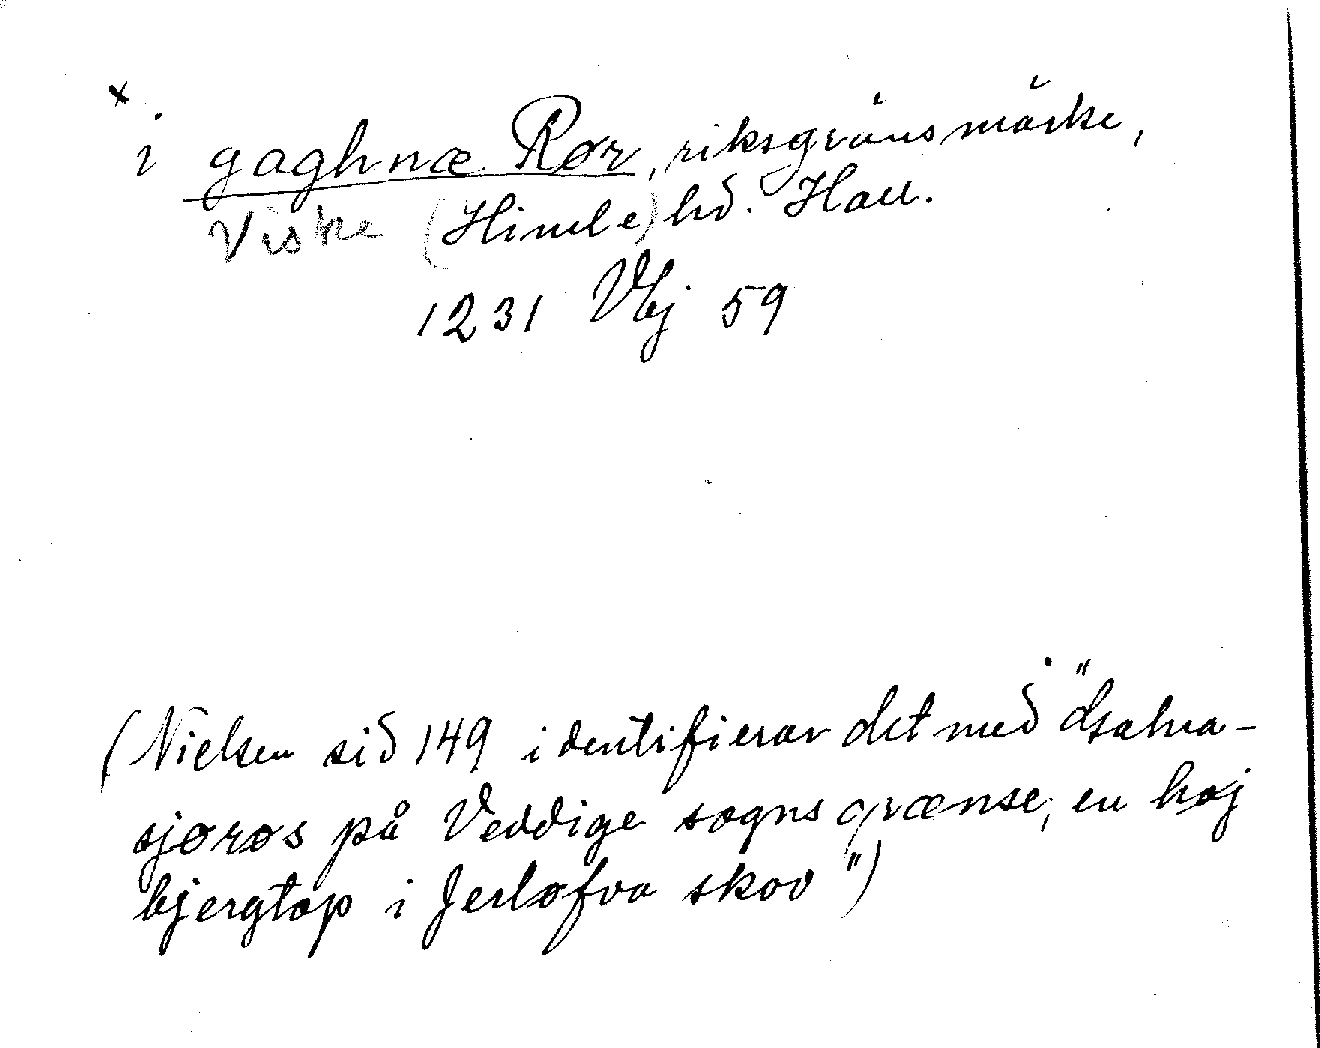 x
i gaghnæ Rør, riksgränsmärke,
Viske (Himle) hd. Hall.
1231 Vbj 59
(Nielsen sid 149 identifierar det med "
sjøros på Veddige sogns grænse, en høj
bjergtop i Jerløfva skov")